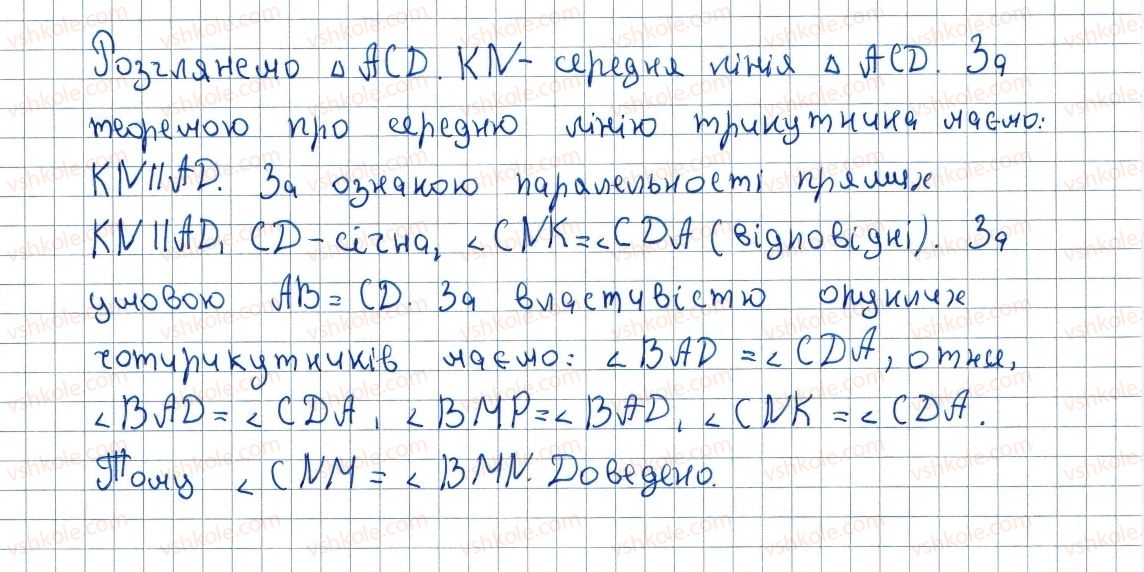 Розглянемо △ ACD. KN - середня лінія △ ACD. За
теоремою про середню лінію трикутника маємо:
KN || AD. За ознакою паралельності прямих
KN || AD, CD - січна, ∠CNK = ∠CDA (відповідні). За
умовою AB = CD. За властивістю опуклих
чотирикутників маємо: ∠BAD = ∠CDA, отже,
∠BAD = ∠CDA, ∠BMP = ∠BAD, ∠CNK = ∠CDA.
Тому ∠CNM = ∠BMN. Доведено.